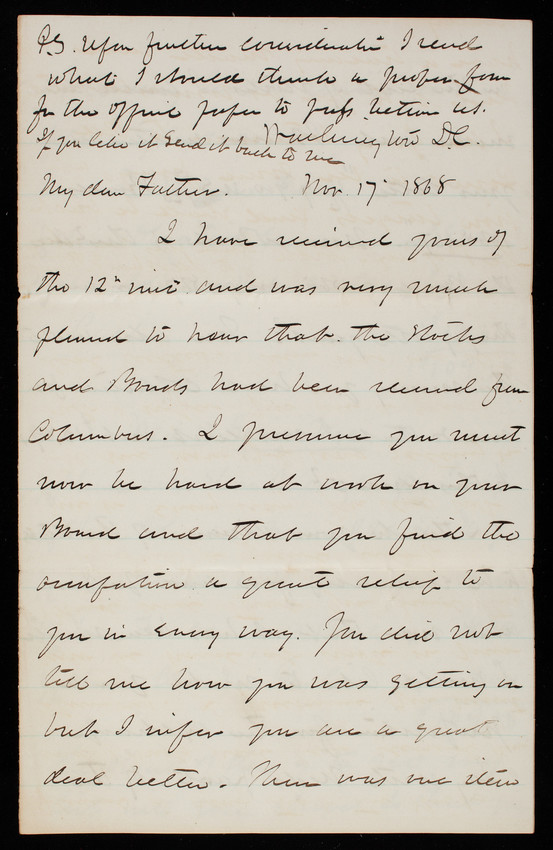 P.S. Upon further consideration I send
what I should think a proper form
for the official paper to pass action as.
If you like it send it back to me
Washington D.C.
My dear Father. Nov. 17 1868
I have received yours of
the 12th inst and was very much
pleased to hear that the Stocks
and Bonds had been received from
Columbus. I presume you must
now be hard at work on your
Board and that you find the
occupation a great relief to
you in every way. You did not
tell me how you was getting on
but I infer you are a great
deal better. There was one item